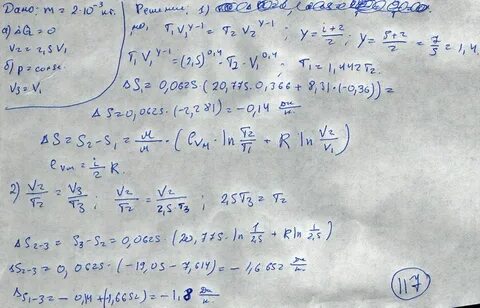 Дано: m = 2·10⁻³ кг.
а) ΔQ = 0
V₂ = 2,5V₁
б) p = const.
V₃ = V₁
Решение: 1)
T₁V₁^γ⁻¹ = T₂V₂^γ⁻¹; γ = (i+2)/i; γ = (5+2)/5 = 7/5 = 1,4
T₁V₁^γ⁻¹ = (2,5)^0,4 · T₂ · V₁^0,4; T₁ = 1,442T₂.
ΔS₁ = 0,0625 (20,775·0,366 + 8,31·(-0,36)) =
ΔS = 0,0625·(-2,281) = -0,14 Дж/К
ΔS = S₂ - S₁ = m/M · (C_VM · ln T₂/T₁ + R ln V₂/V₁)
C_VM = i/2 R.
2) V₂/T₂ = V₃/T₃; V₂/T₂ = V₂/(2,5·T₃); 2,5T₃ = T₂
ΔS₂₋₃ = S₃ - S₂ = 0,0625·(20,775·ln 1/2,5 + R ln 1/2,5)
ΔS₂₋₃ = 0,0625·(-19,05 - 7,614) = -1,6652 Дж/К
ΔS₁₋₃ = -0,14 + (-1,6652) = -1,8 Дж/К.
117